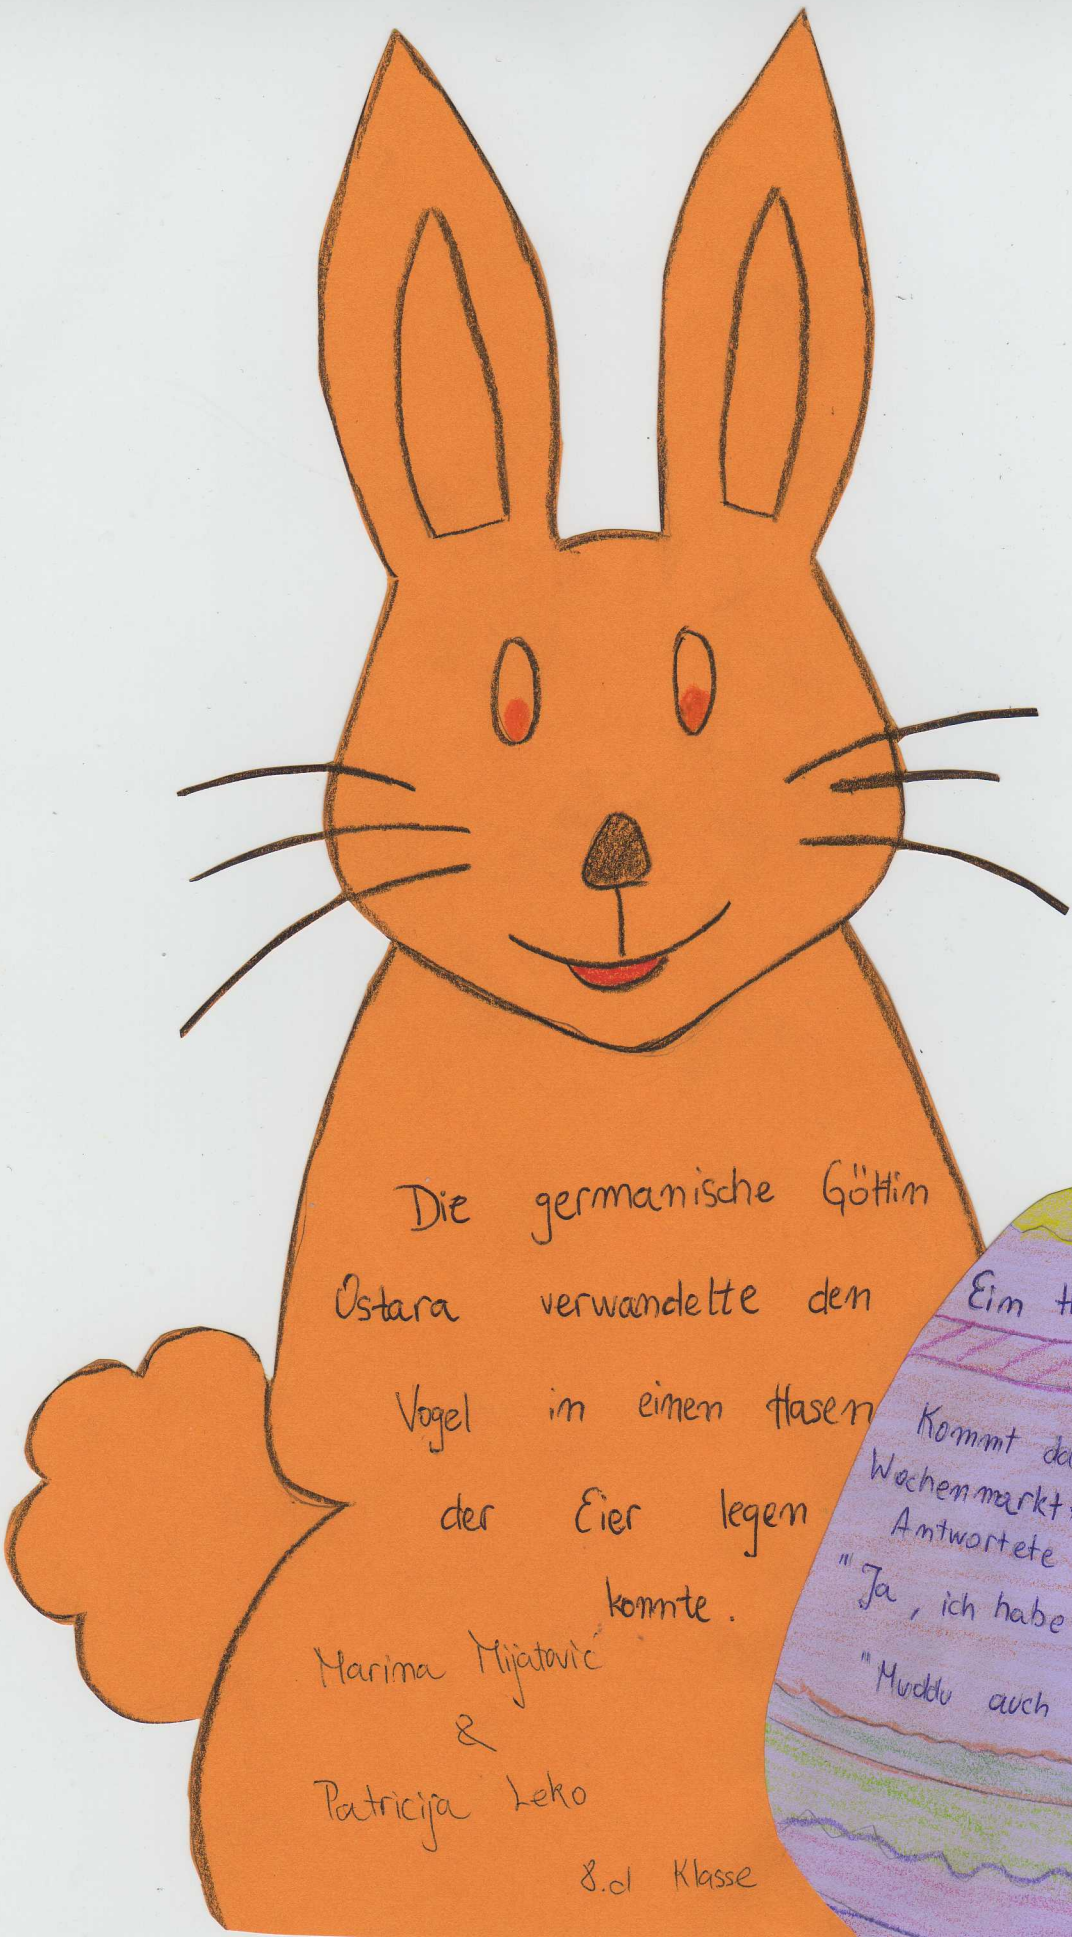 Die germanische Göttin
Ostara verwandelte den
Vogel in einen Hasen
der Eier legen
konnte.
Marina Mijatović
&
Patricija Leko
8.d Klasse
Ein
Kommt
Wochenmarkt
Antwortete
"Ja, ich habe
"Muddu auch